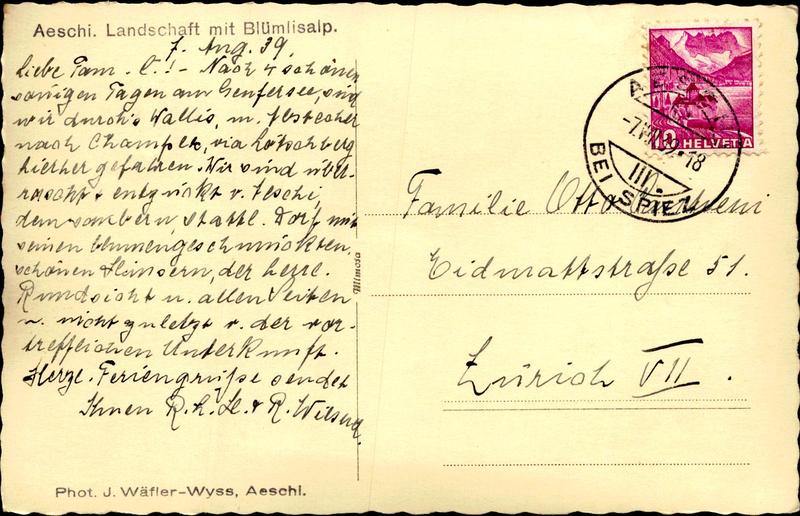 Aeschi. Landschaft mit Blümlisalp.
7. Aug. 39.
Liebe Fam. C.! - Nach 4 schönen
sonnigen Tagen am Genfersee, sind
wir durch's Wallis, m. Abstecher
nach Champex, via Lötschberg
hierher gefahren. Wir sind über-
rascht & entzückt v. Aeschi,
dem saubern, stattl. Dorf mit
seinen blumengeschmückten,
schönen Häusern, der herrl.
Rundsicht n. allen Seiten
u. nicht zuletzt v. der vor-
trefflichen Unterkunft.
Herzl. Feriengrüße sendet
Ihnen R. &
Phot. J. Wäfler-Wyss, Aeschi.
Mimosa
HELVETIA
10
AESCHI
-7.VIII.39-18
BEI SPIEZ
Familie Otto
Eidmattstraße 51.
Zürich VII.